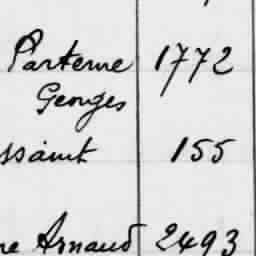 Parterne 1772
Georges
ssaint 155
ne Arnaud 2493